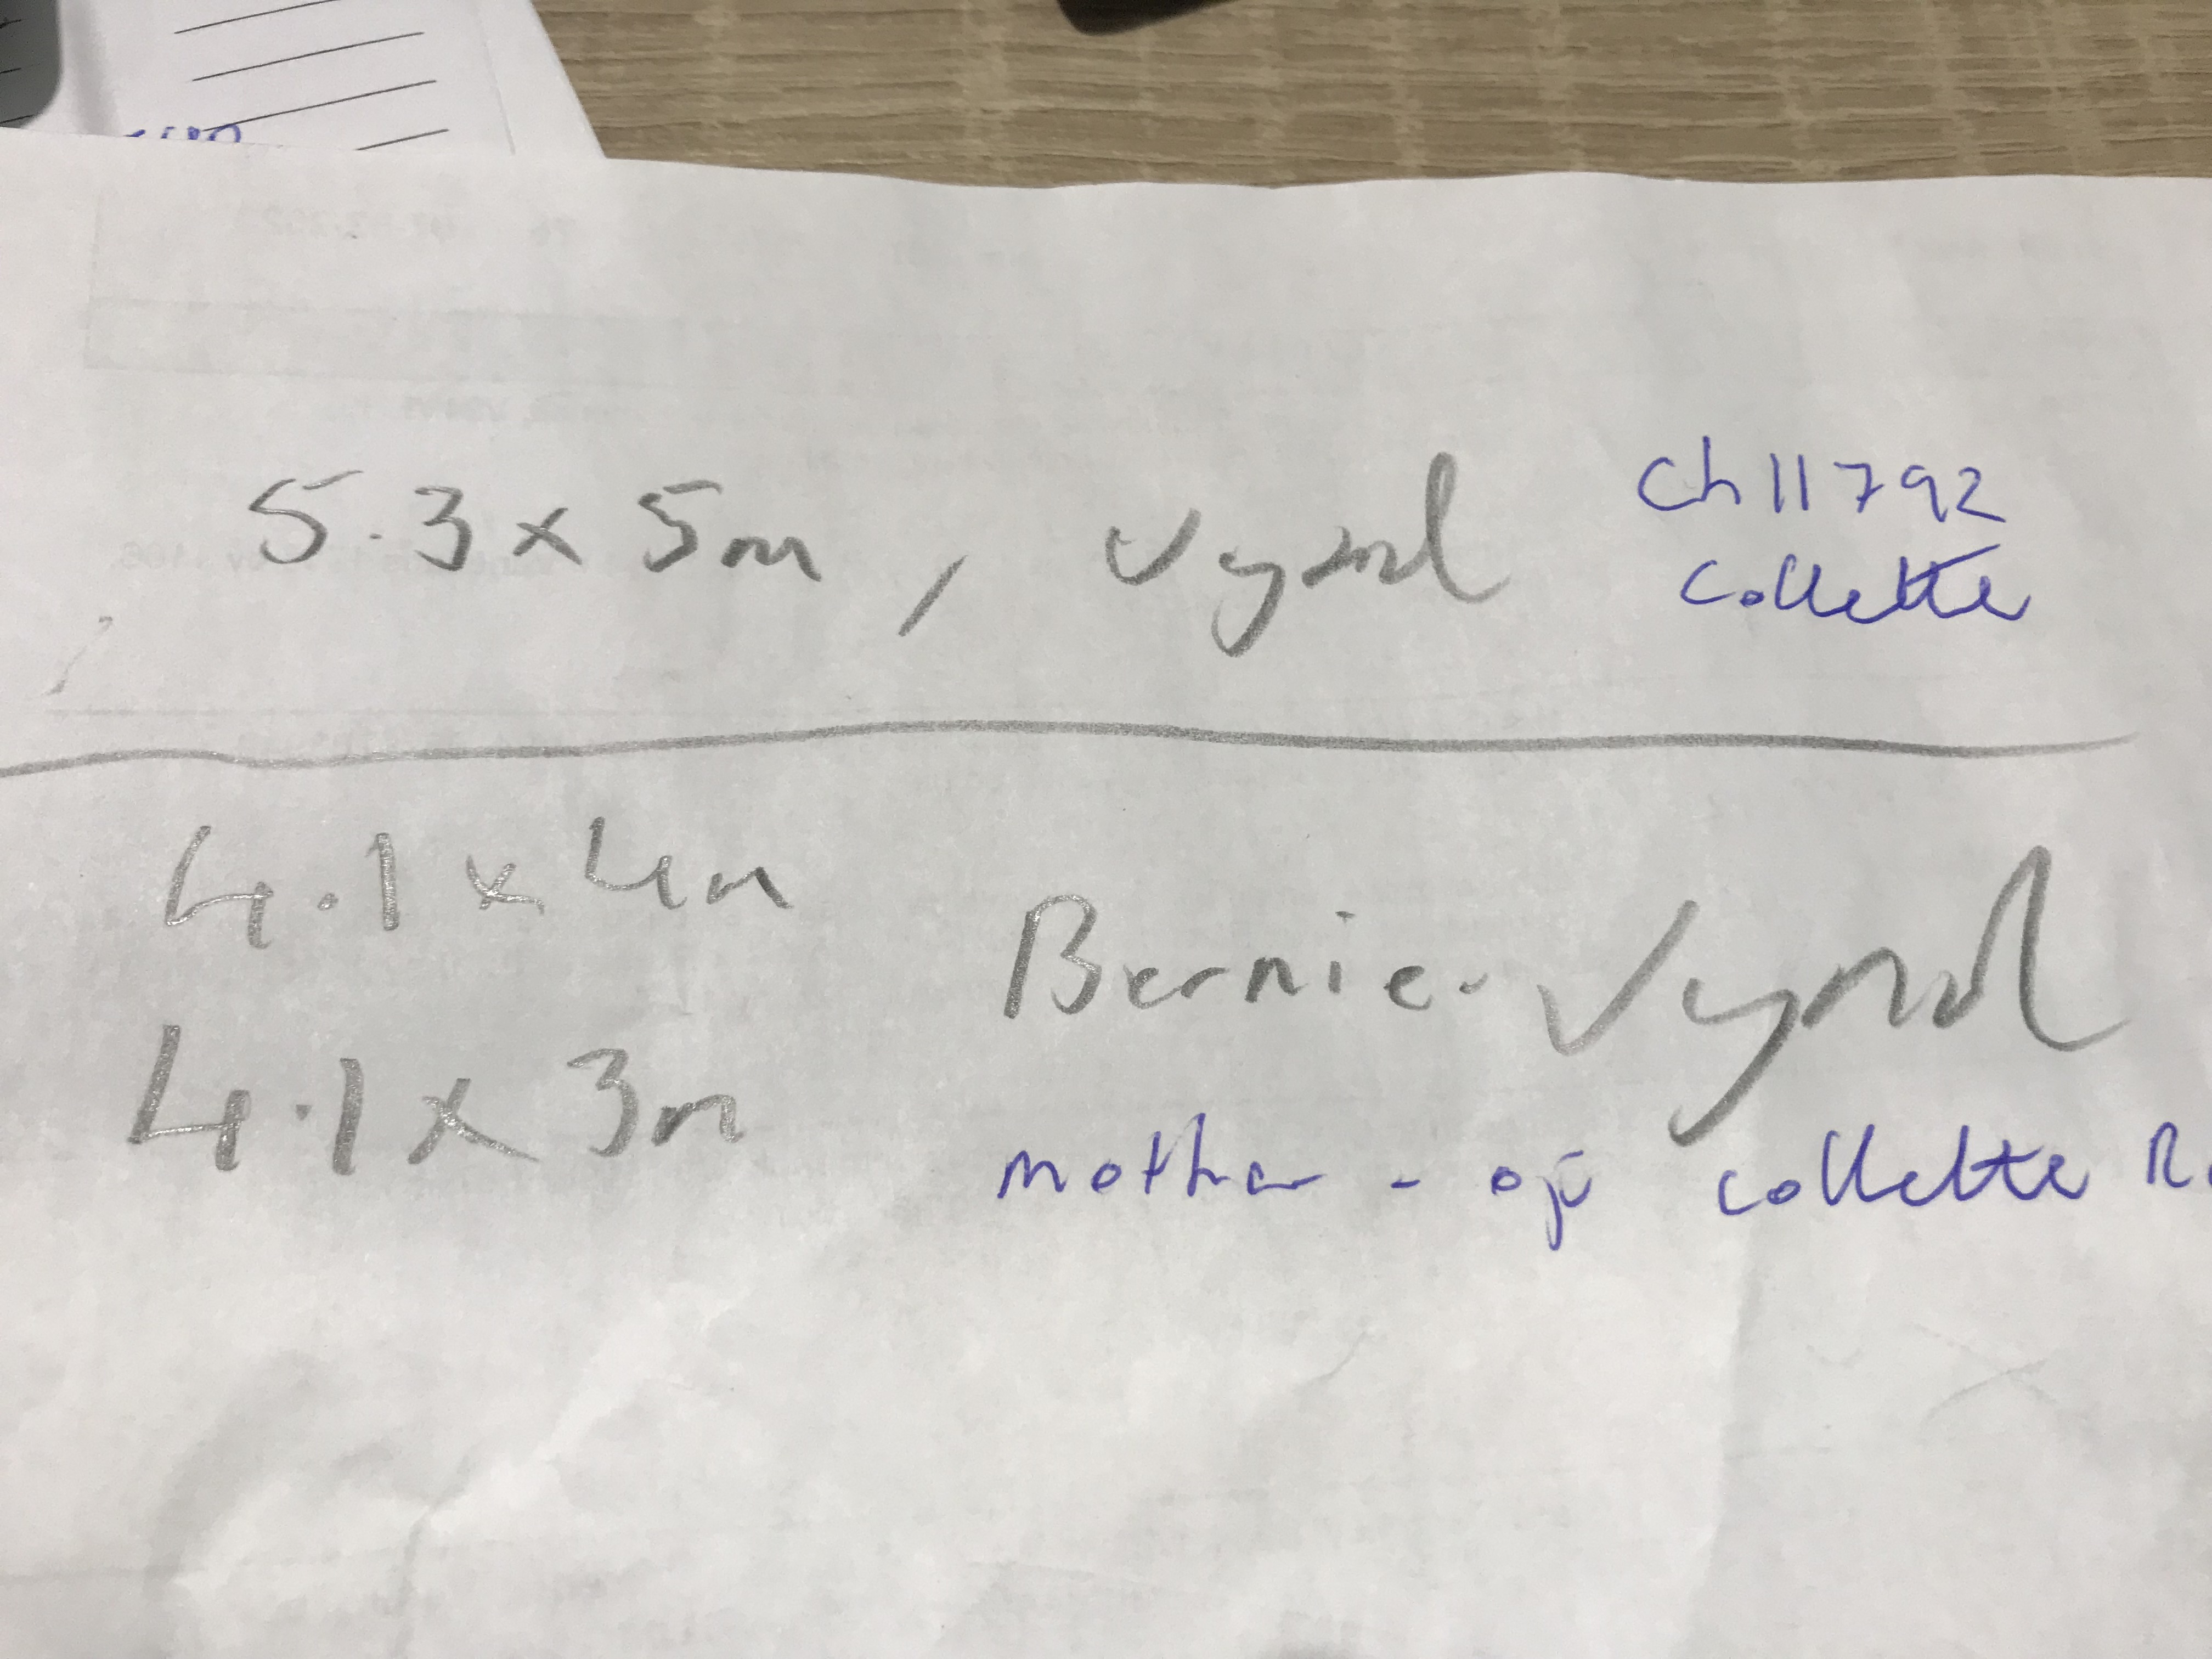 5.3 x 5m, vynal
Ch11792
collette
4.1 x 4m
Bernie. Vynal
4.1 x 3m
mother - of collette R